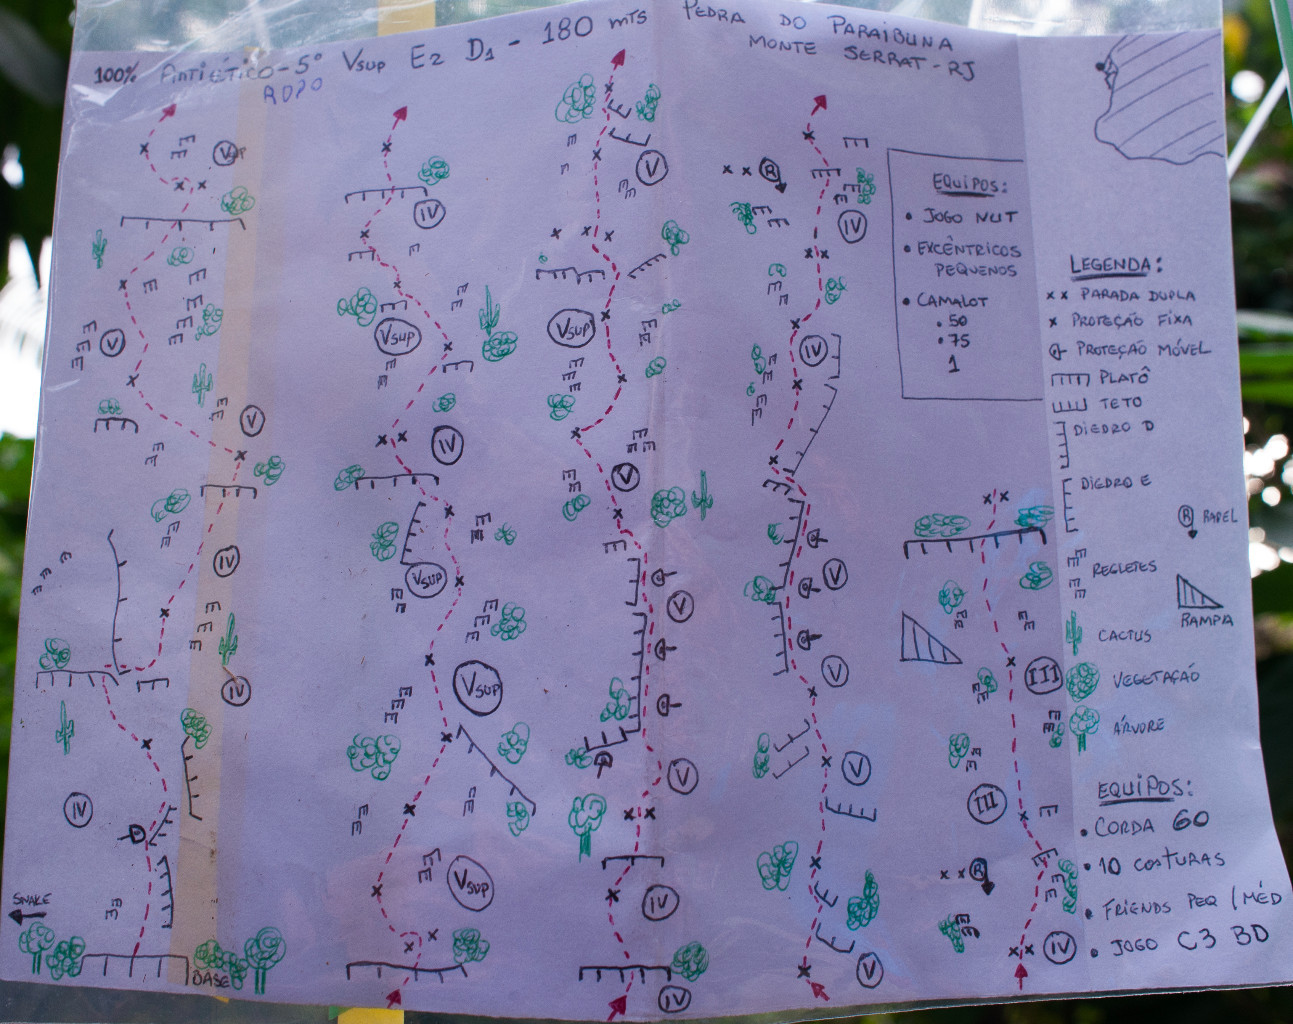 100% Antiético - 5º Vsup E2 D1 - 180 mts
PEDRA DO PARAIBUNA
MONTE SERRAT - RJ
Vsup
V
V
IV
IV
IV
SNAKE
BASE
IV
Vsup
IV
Vsup
Vsup
Vsup
V
Vsup
V
V
V
IV
IV
R
IV
IV
V
V
V
V
III
III
R
IV
EQUIPOS:
• JOGO NUT
• EXCÊNTRICOS
PEQUENOS
• CAMALOT
• 50
• 75
1
LEGENDA:
x x PARADA DUPLA
x PROTEÇÃO FIXA
PROTEÇÃO MÓVEL
PLATÔ
TETO
DIEDRO D
DIEDRO E
R RAPEL
REGLETES
RAMPA
CACTUS
VEGETAÇÃO
ÁRVORE
EQUIPOS:
• CORDA 60
• 10 COSTURAS
• FRIENDS PEQ / MÉD
• JOGO C3 BD